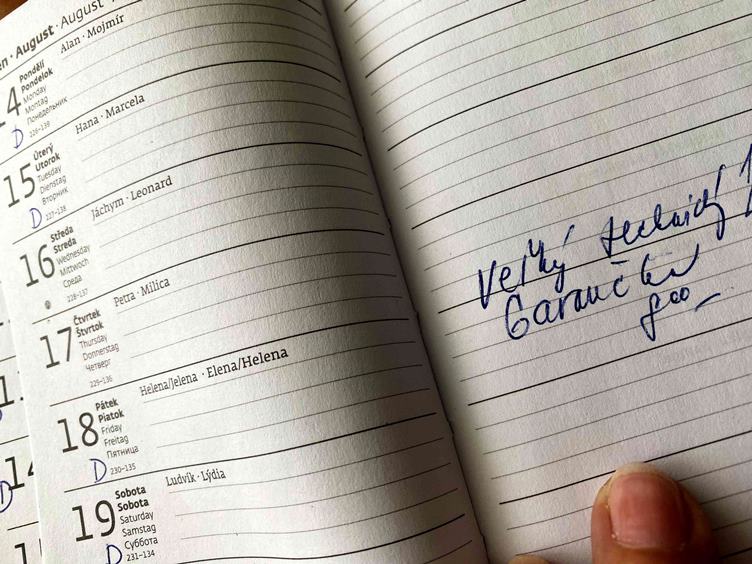 en · August · August ·
4
Pondělí
Pondelok
Monday
Montag
Понедельник
226–139
D
Alan · Mojmír
15
Úterý
Utorok
Tuesday
Dienstag
Вторник
227–138
D
Hana · Marcela
16
Středa
Streda
Wednesday
Mittwoch
Среда
228–137
Jáchym · Leonard
17
Čtvrtek
Štvrtok
Thursday
Donnerstag
Четверг
229–136
Petra · Milica
18
Pátek
Piatok
Friday
Freitag
Пятница
230–135
D
Helena/Jelena · Elena/Helena
19
Sobota
Sobota
Saturday
Samstag
Суббота
231–134
D
Ludvík · Lýdia
Veľký technický
800,–